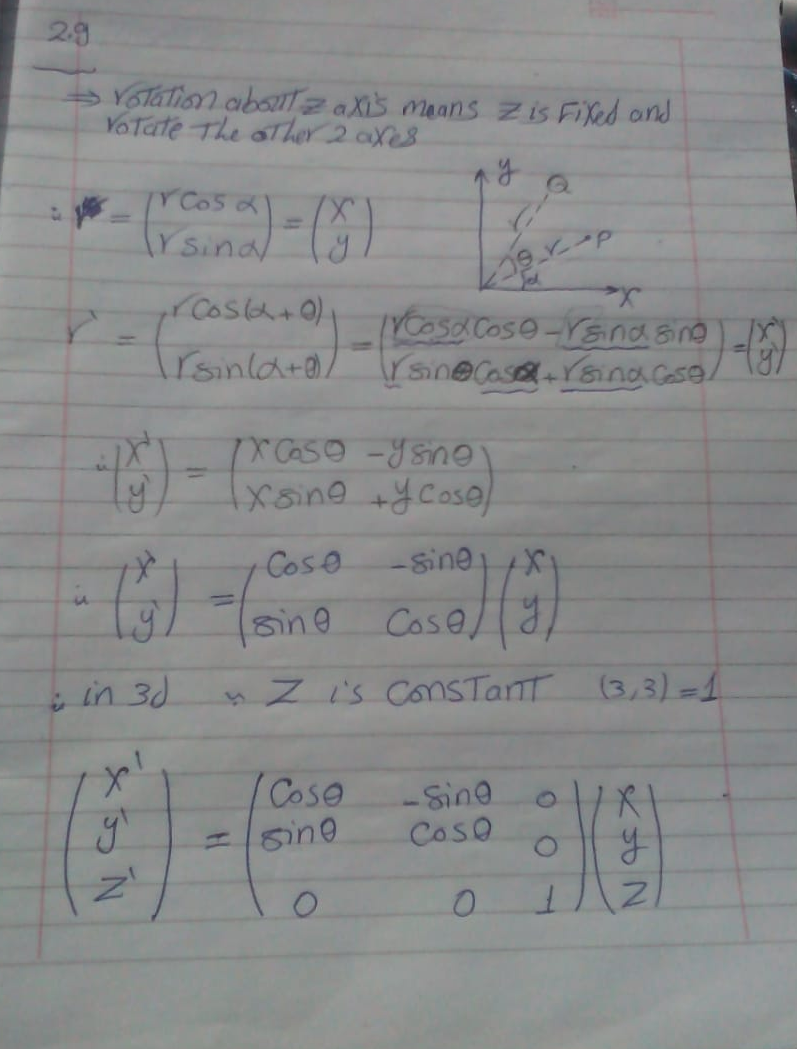 2.9
⇒ rotation about z axis means z is fixed and
rotate the other 2 axes
∴ = (r cos α / r sin α) = (x / y)
y
Q
r
θ
r
P
α
x
r' = (r cos(α + θ) / r sin(α + θ)) = (r cos α cos θ - r sin α sin θ / r sin θ cos α + r sin α cos θ) = (x' / y')
∴ (x' / y') = (x cos θ - y sin θ / x sin θ + y cos θ)
∴ (x' / y') = (cos θ -sin θ / sin θ cos θ) (x / y)
∴ in 3d ∵ z is constant (3,3) = 1
(x' / y' / z') = (cos θ -sin θ 0 / sin θ cos θ 0 / 0 0 1) (x / y / z)